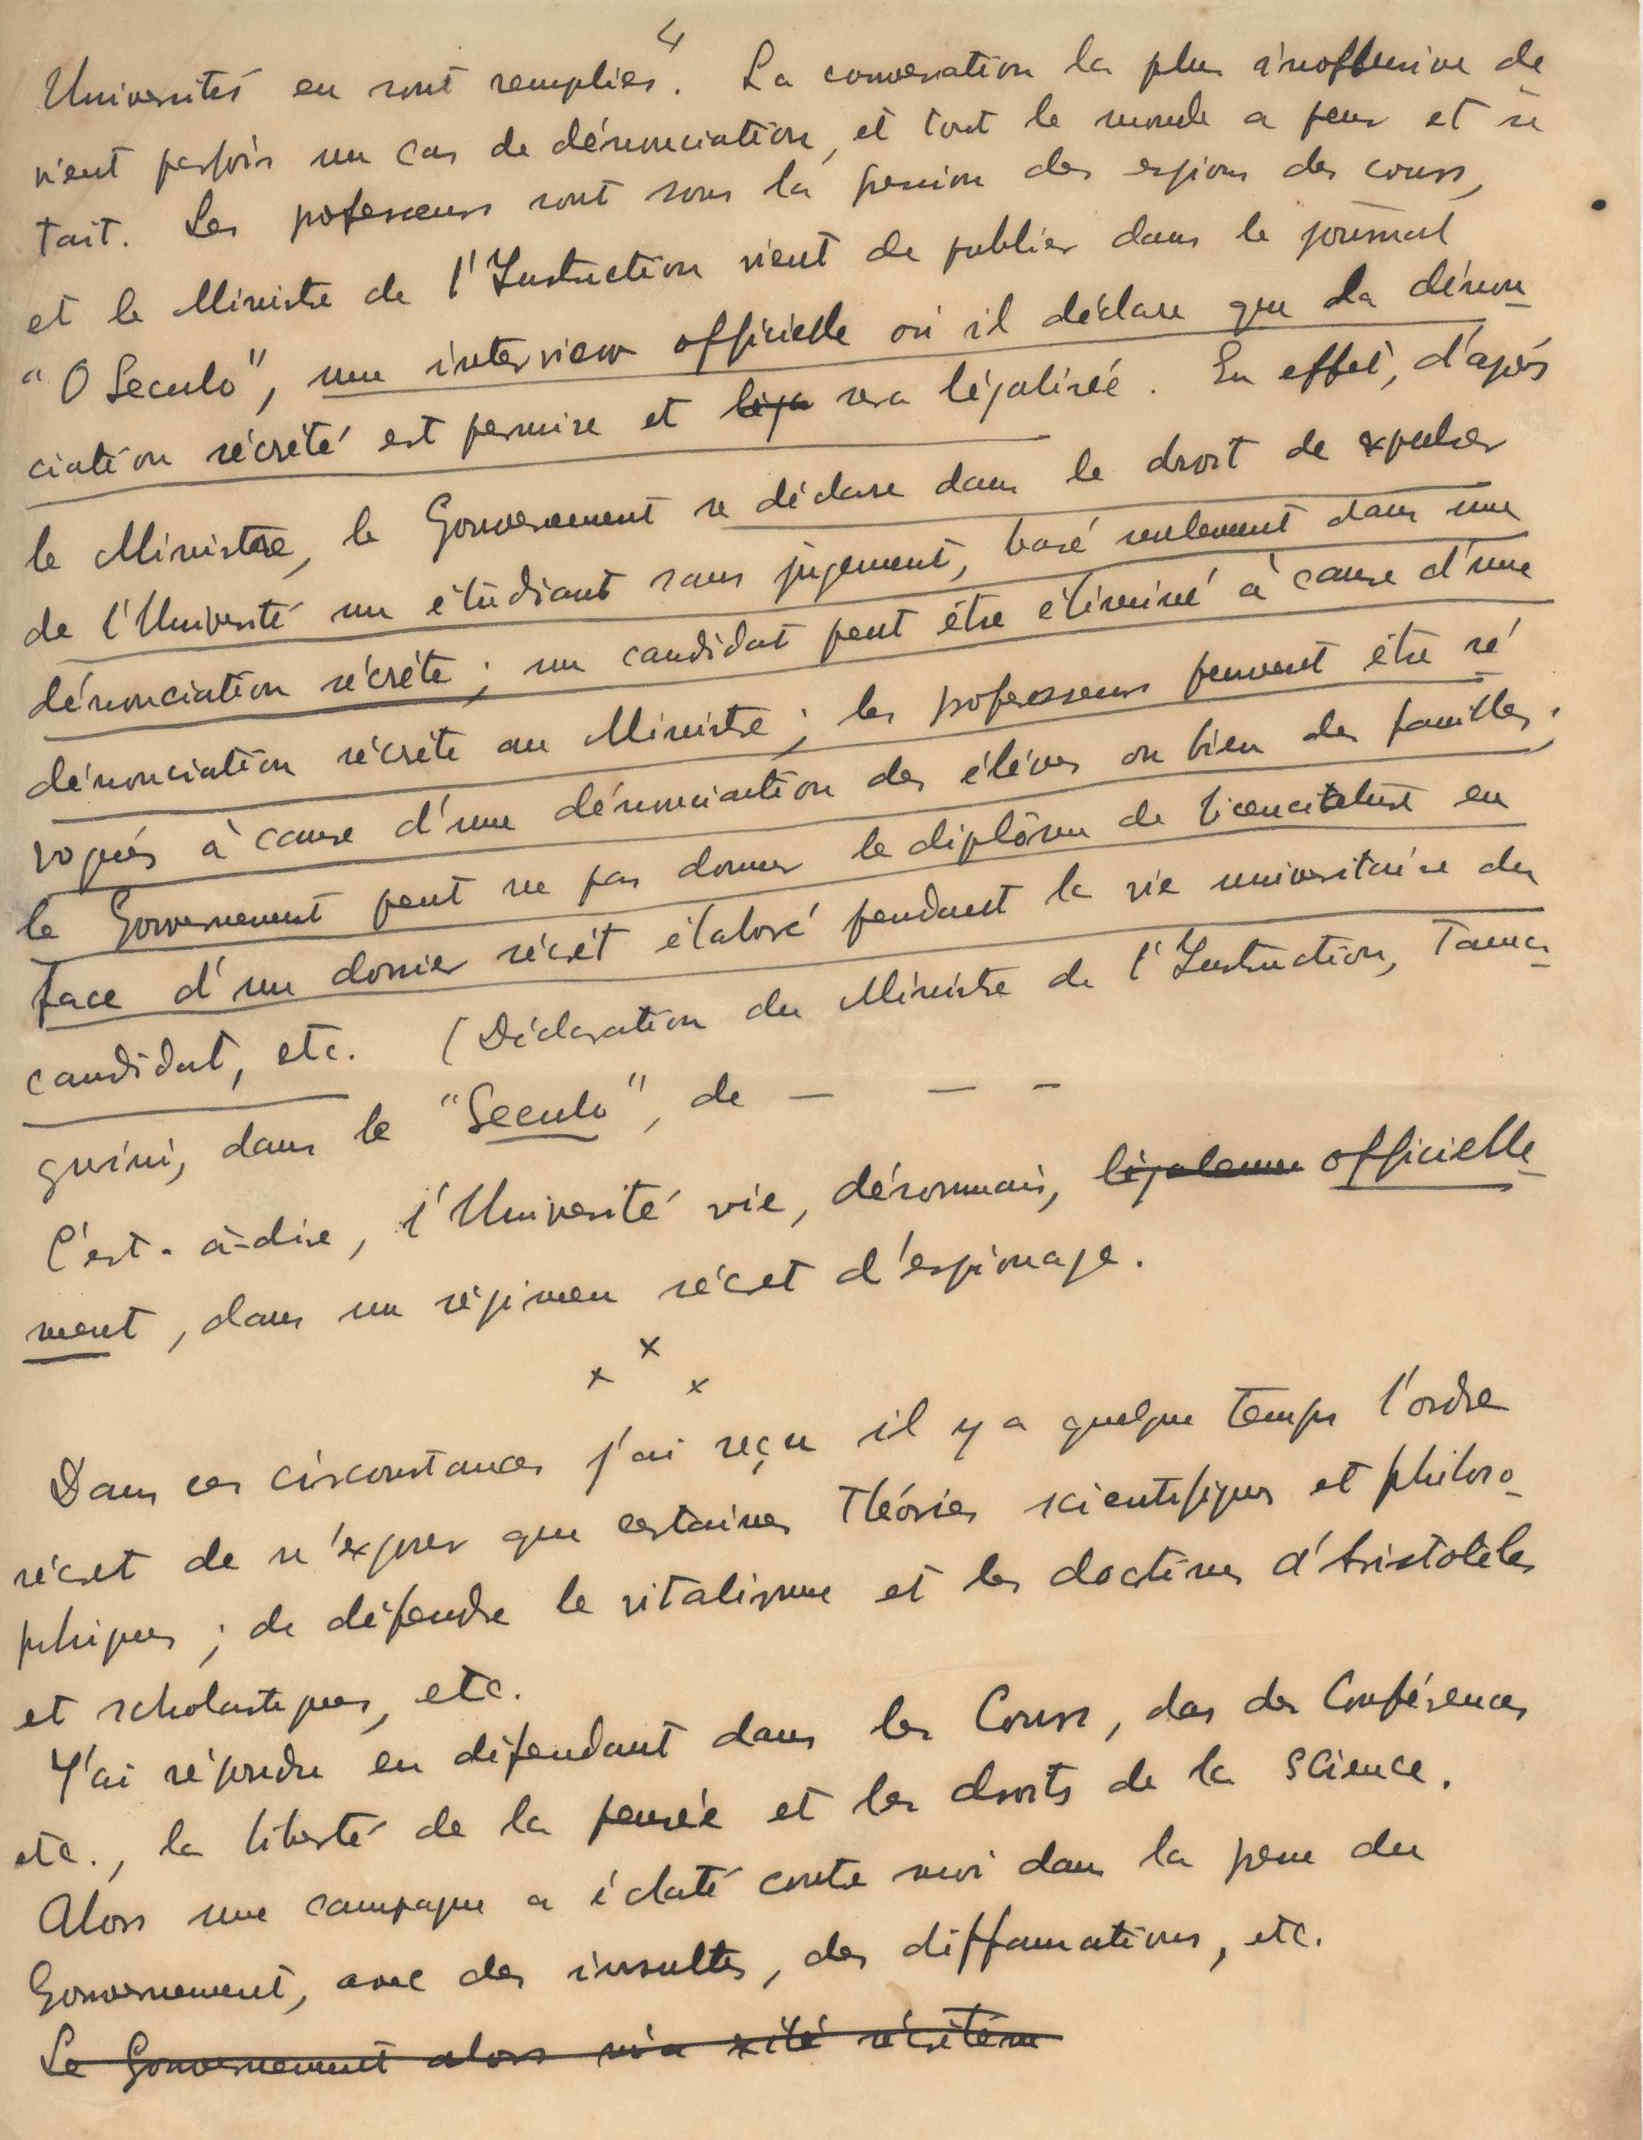 4
Universités en sont remplies. La conversation la plus inoffensive de
vient parfois un cas de dénonciation, et tout le monde a peur et se
tait. Les pofesseurs sont sous la pression des espions des cours,
et le Ministre de l'Instruction vient de publier dans le journal
"O Seculo", une interview officielle où il déclare que la dénon-
ciation sécrété est permise et liga sera légalisée. En effet, d'après
le Ministère, le Gouvernement se déclare dans le droit de expulser
de l'Université un étudiant sans jugement, basé seulement dans une
dénonciation sécrète ; un candidat peut être éliminé à cause d'une
dénonciation sécrète au Ministre ; les professeurs peuvent être ré
voqués à cause d'une dénonciation des élèves ou bien des familles ;
le Gouvernement peut ne pas donner le diplôme de licenciature en
face d'un dossier sécrét élaboré pendant la vie universitaire du
candidat, etc. (Déclaration du Ministre de l'Instruction, Tama-
gnini, dans le "Seculo", de — — —
C'est-à-dire, l'Université vie, désormais, légalemen officielle-
ment, dans un régimen sécret d'espionage.
x x x
Dans ces circonstances j'ai reçu il y a quelque temps l'ordre
sécret de n'exposer que certaines Théories scientifiques et philoso-
phiques ; de défendre le vitalisme et les doctrines d'Aristoteles
et scholastiques, etc.
J'ai répondu en défendant dans les Cours, das des Conférences
etc., la liberté de la pensée et les droits de la Science.
Alors une campagne a éclaté contre moi dans la presse du
Gouvernement, avec des insultes, des diffamations, etc.
Le Gouvernement alors m'a été sécrètem